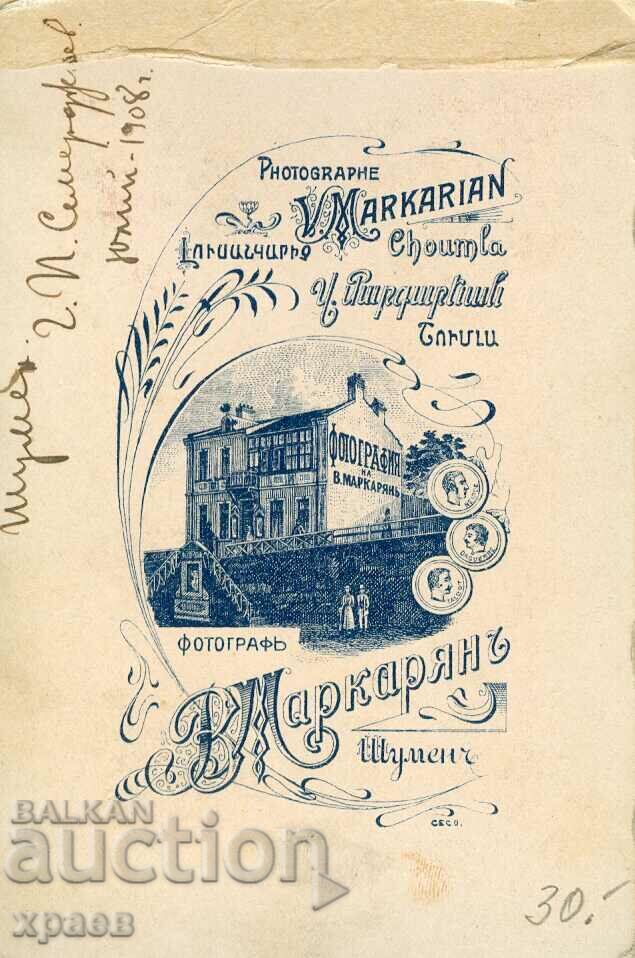 PHOTOGRAPHE
V. MARKARIAN
ԼՈՒՍԱՆԿԱՐԻՉ Choumla
Վ. Մարգարեան
ՇՈՒՄԼԱ
ФОТОГРАФИЯ
НА
В. МАРКАРЯНЪ
NIEPCE
DAGUERRE
TALBOT
ФОТОГРАФЪ
В. Маркарянъ
Шуменъ
CECO.
Шумен.
Г. П. Семерджиев
юлий - 1908 г.
30.-
BALKAN
auction
храев